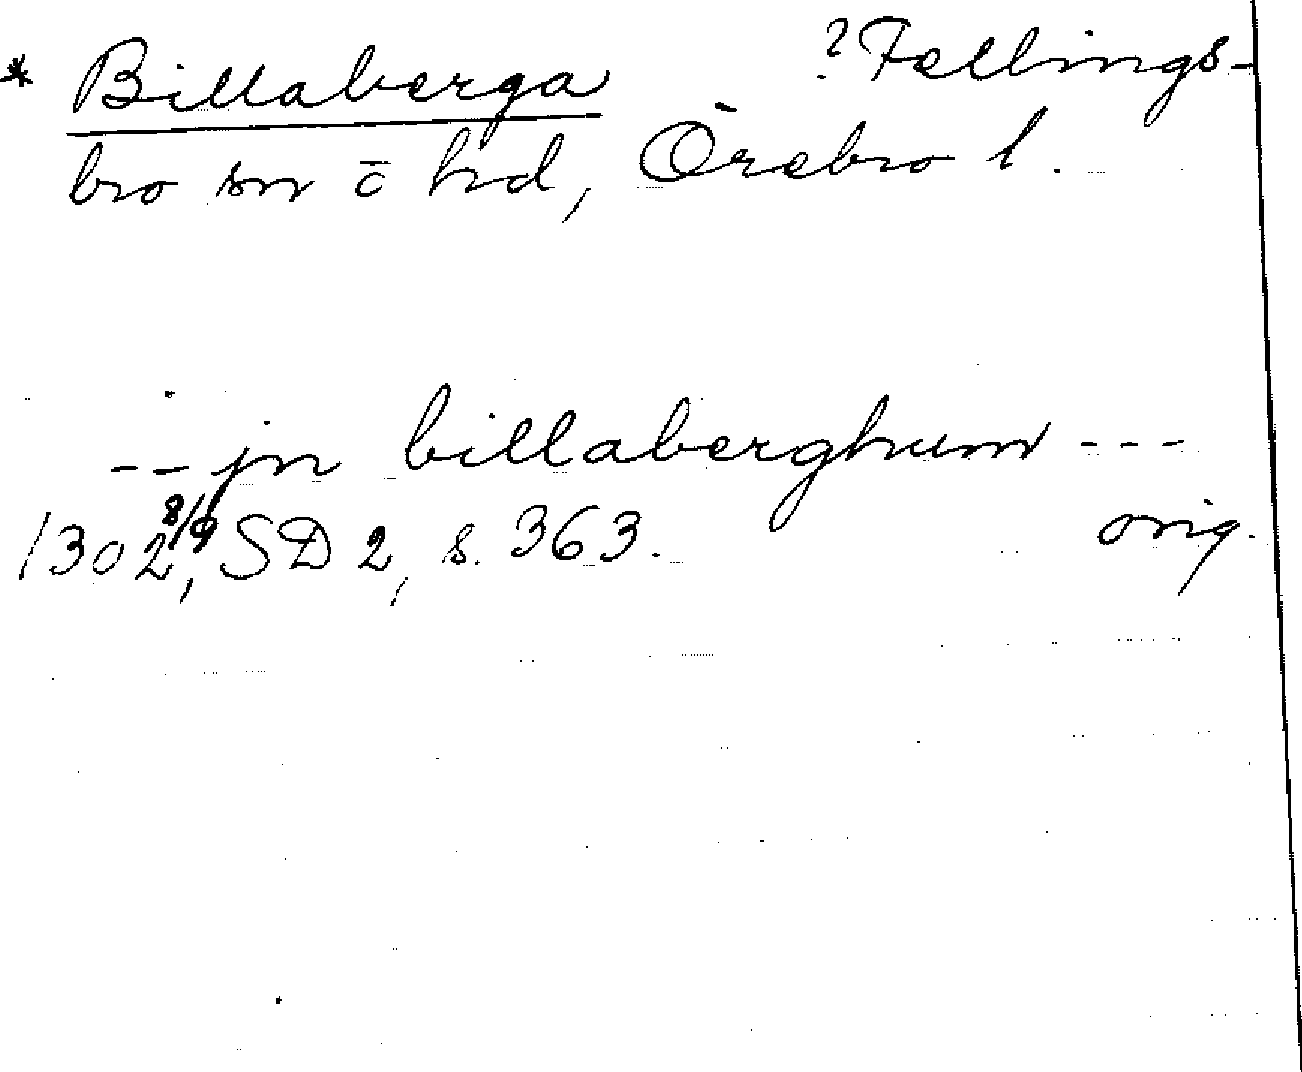 * Billaberga ? Fellings-
bro sn o hd, Örebro l.
-- jn billaberghum ---
1302 8/9, SD 2, s. 363. orig.